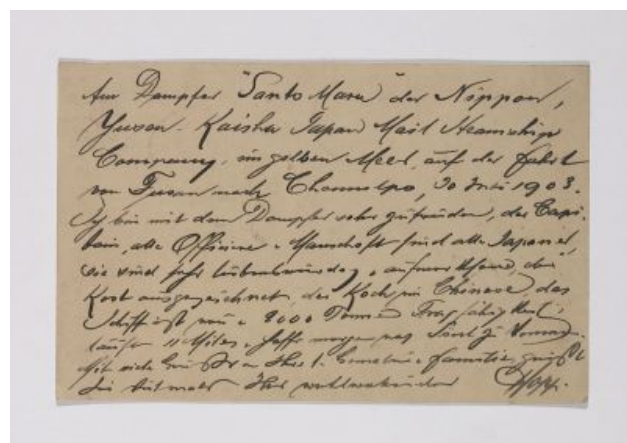 Am Dampfer "Santo Maru" der Nippon,
Yusen-Kaisha Japan Mail Steamship
Company, im gelben Meer, auf der Fahrt
von Fusan nach Chemulpo, 30 Juli 1903.
Ich bin mit dem Dampfer sehr zufrieden, der Capi-
tain, alle Officiere u Mannschaft sind alle Japaner,
sie sind sehr liebenswürdig u aufmerksam, die
Kost ausgezeichnet, der Koch ein Chinese das
Schiff ist neu u 2000 Tonnen Tragfähigkeit,
läuft 11 Milen, hoffe morgen
Mit viele Grüße an Ihre l. Gemalin u Familie grüßt
Sie Ihr wohlwollender Hopp.